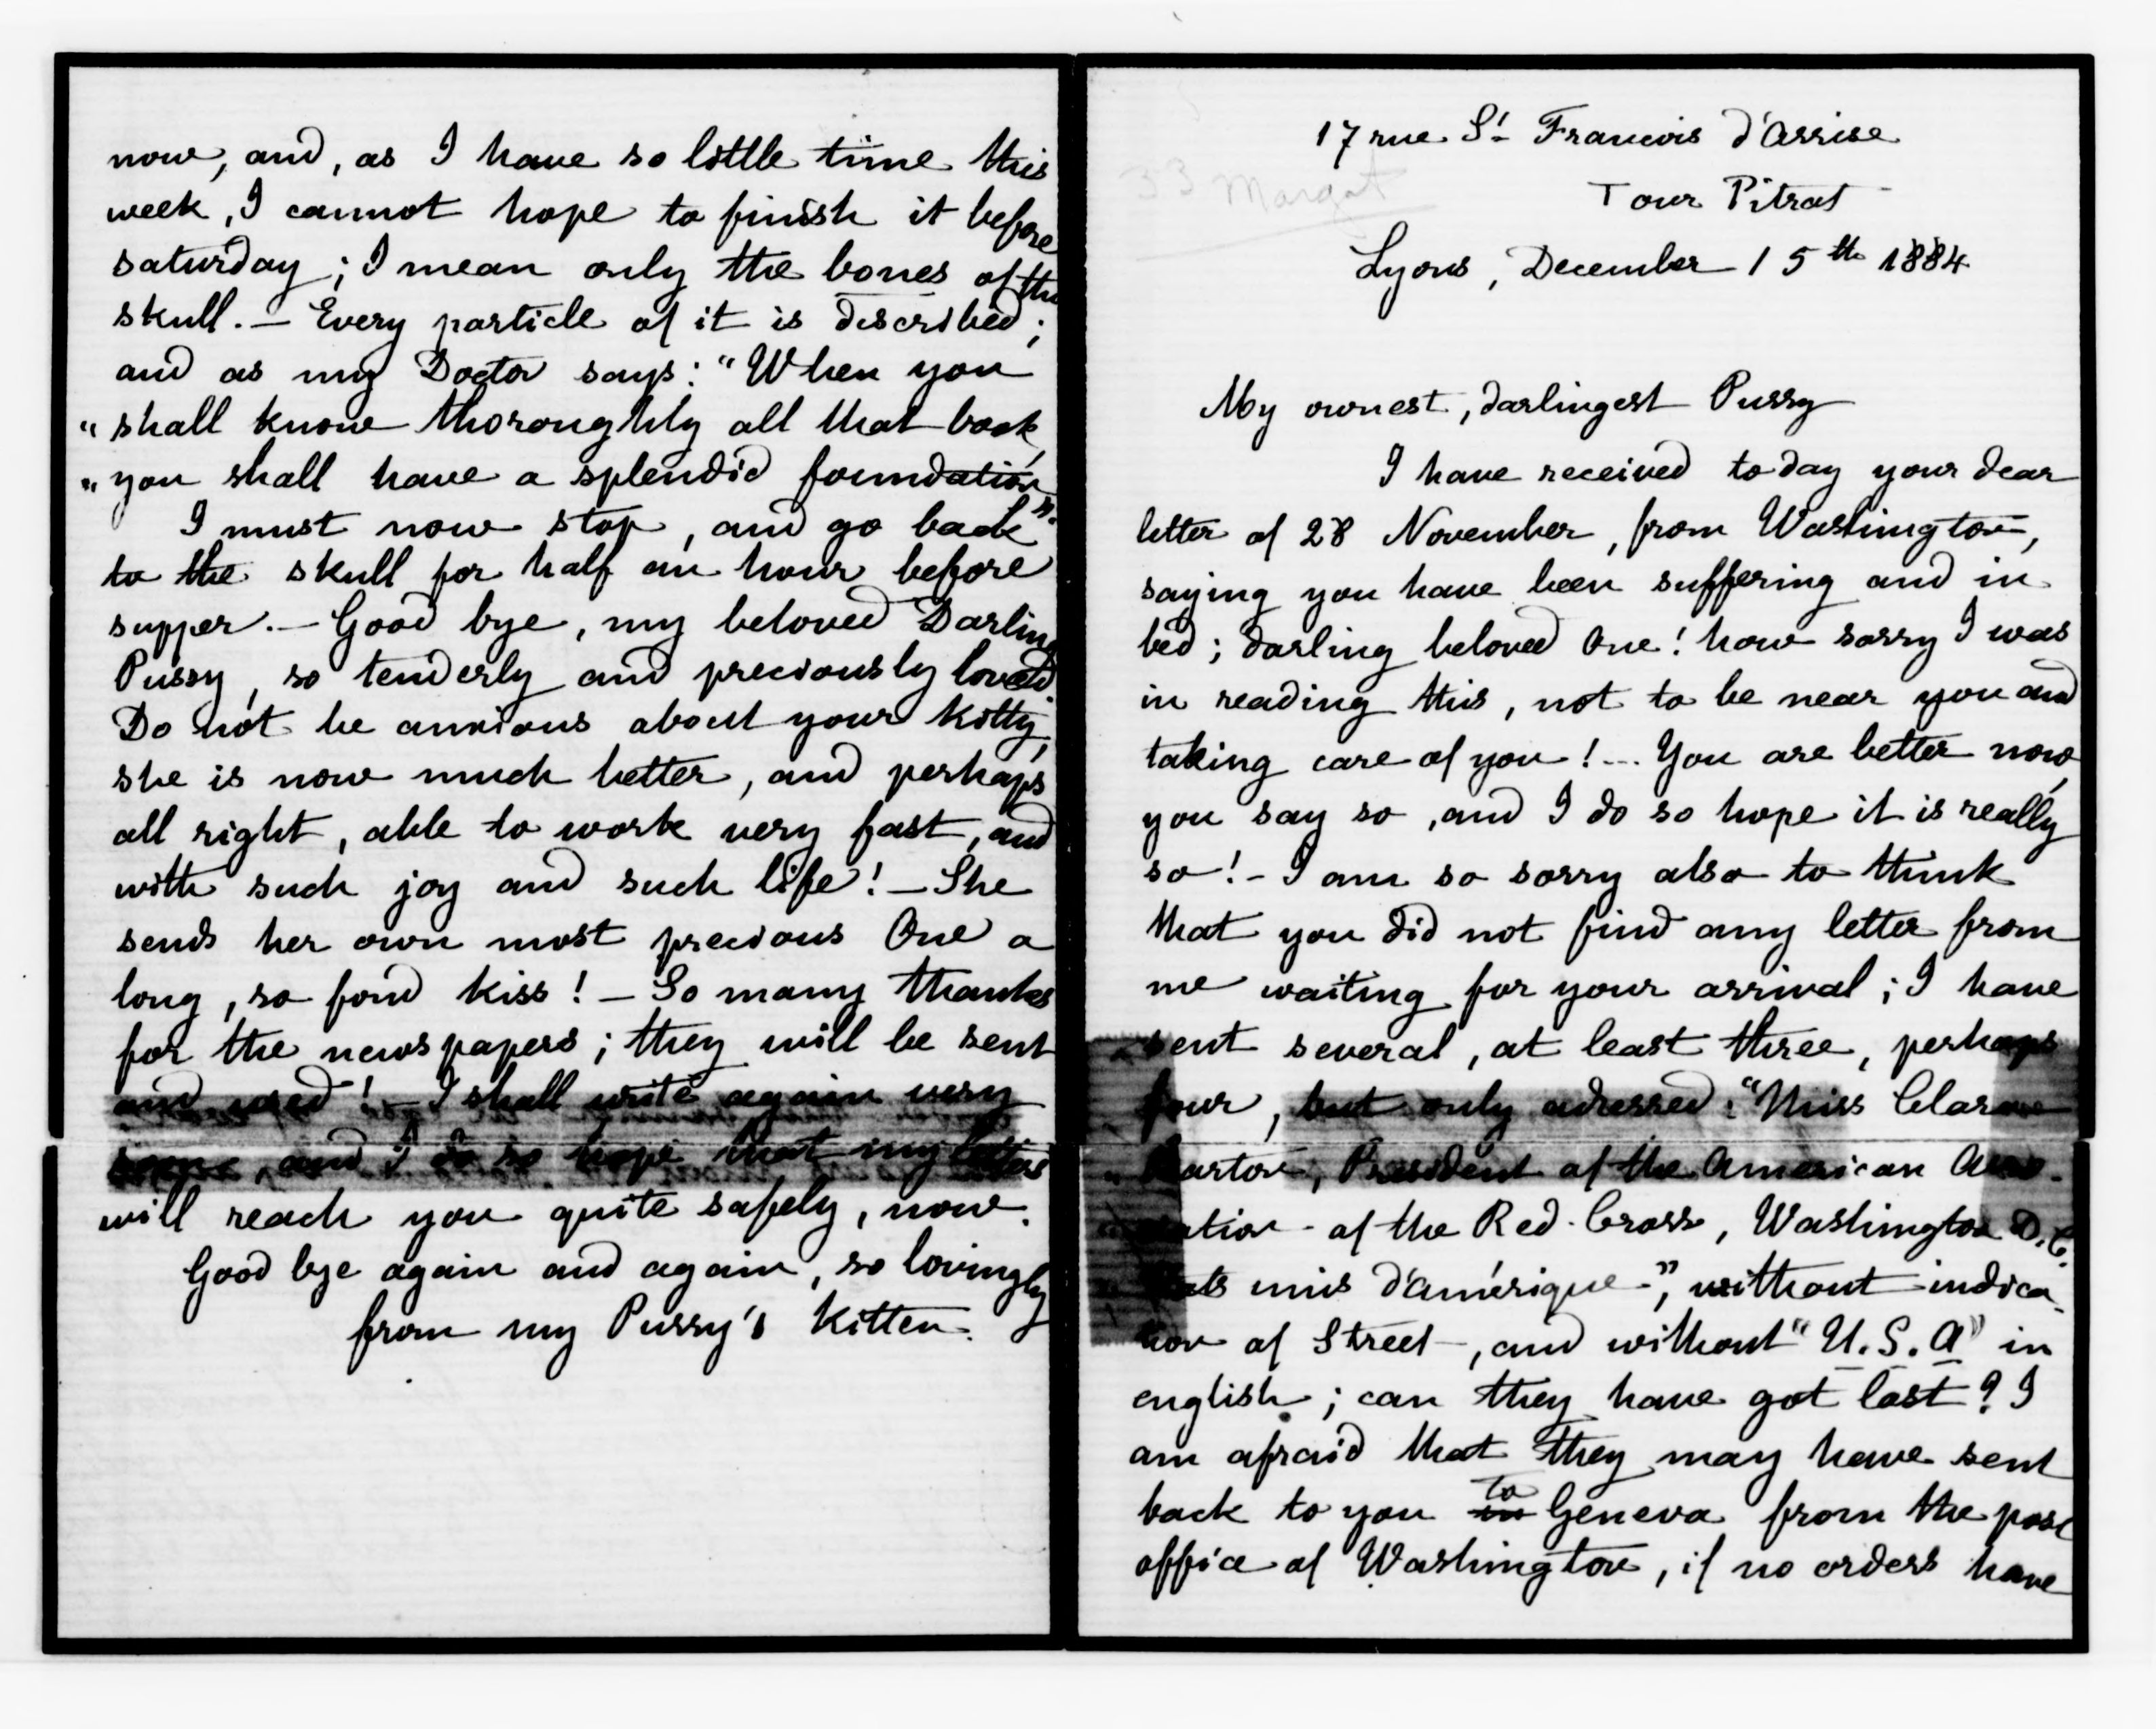 now, and, as I have so little time this
week, I cannot hope to finish it before
saturday ; I mean only the bones of the
skull. — Every particle of it is described ;
and as my Doctor says : "When you
"shall know thoroughly all that book,
"you shall have a splendid foundation".
I must now stop, and go back
to the skull for half an hour before
supper. — Good bye, my beloved Darling
Pussy, so tenderly and preciously loved.
Do not be anxious about your Kitty,
she is now much better, and perhaps
all right, able to work very fast, and
with such joy and such life! — She
sends her own most precious One a
long, so fond kiss! — So many thanks
for the newspapers ; they will be sent
and used! — I shall write again very
soon, and I do so hope that my letters
will reach you quite safely, now.
Good bye again and again, so lovingly
from my Pussy's Kitten.
17 rue St Francois d'Assise
Tour Pitrat
33 Margot
Lyons, December 15th 1884
My ownest, darlingest Pussy
I have received to day your dear
letter of 28 November, from Washington,
saying you have been suffering and in
bed ; darling beloved One! how sorry I was
in reading this, not to be near you and
taking care of you! ... You are better now,
you say so, and I do so hope it is really
so! - I am so sorry also to think
that you did not find any letter from
me waiting for your arrival ; I have
sent several, at least three, perhaps
four, but only adressed : "Miss Clara
"Barton, President of the American Asso-
"ciation of the Red-Cross, Washington D.C.
"Etats unis d'amérique-", without indica-
tion of Street, and without "U.S.A" in
english ; can they have got lost? I
am afraid that they may have sent
back to you in to Geneva from the post
office of Washington, if no orders have